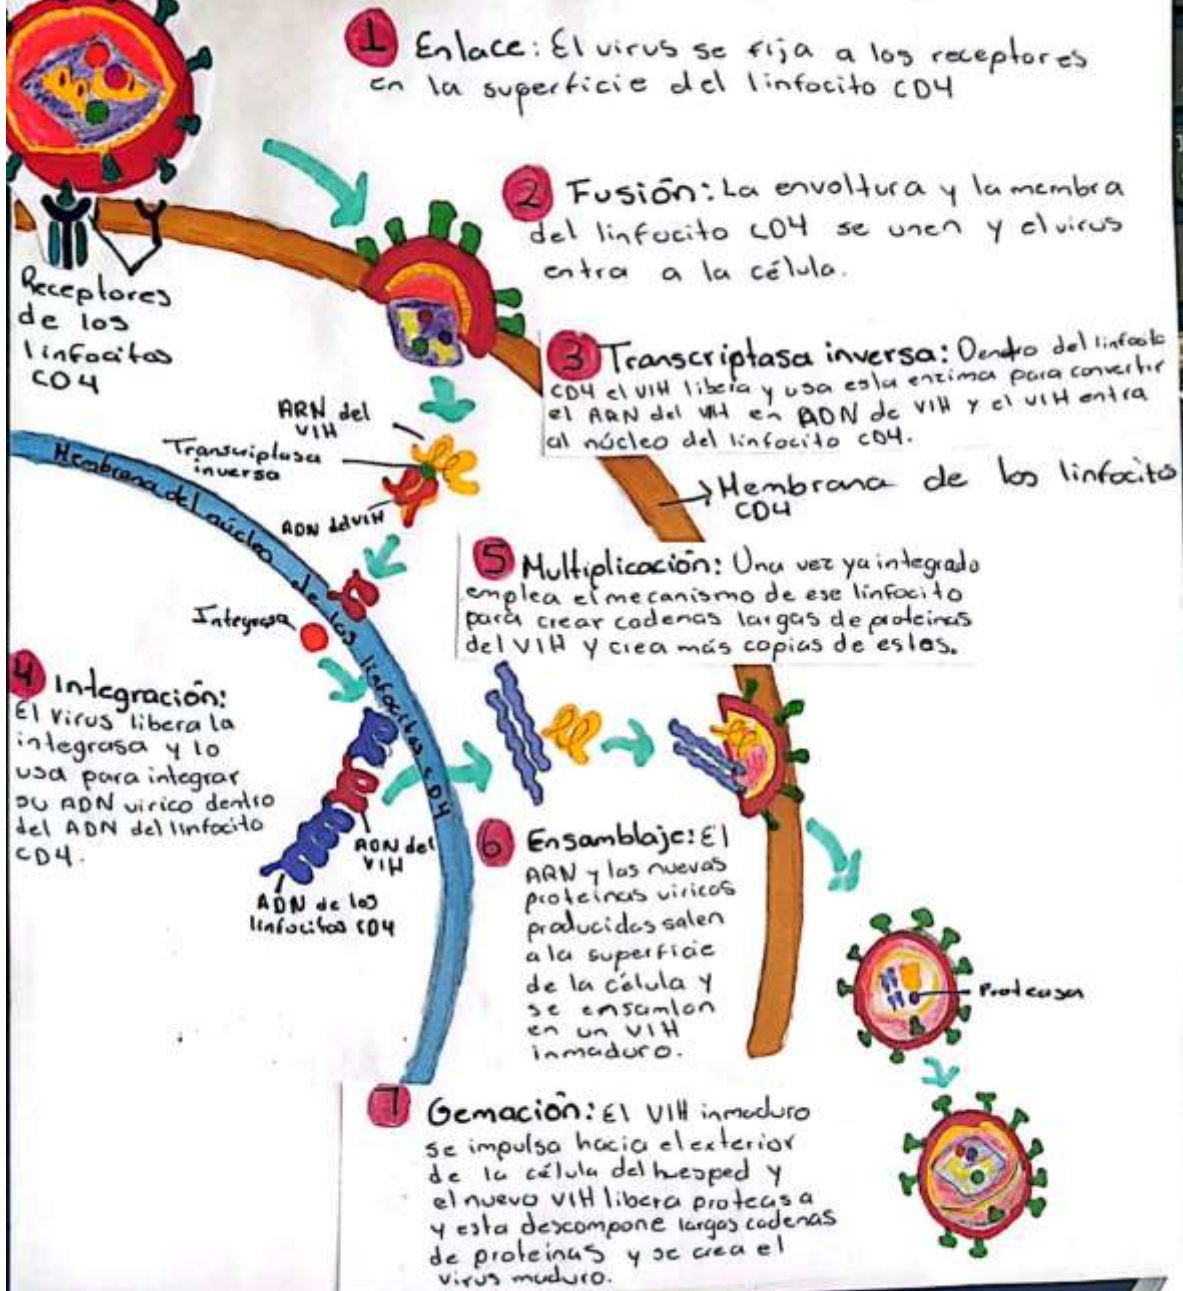 1 Enlace: El virus se fija a los receptores
en la superficie del linfocito CD4
2 Fusión: La envoltura y la membra
del linfocito CD4 se unen y el virus
entra a la célula.
Receptores
de los
linfocitos
CD4
3 Transcriptasa inversa: Dentro del linfocito
CD4 el VIH libera y usa esta enzima para convertir
el ARN del VIH en ADN de VIH y el VIH entra
al núcleo del linfocito CD4.
ARN del
VIH
Transcriptasa
inversa
ADN del VIH
Membrana de los linfocitos
CD4
Membrana del núcleo de los linfocitos CD4
5 Multiplicación: Una vez ya integrado
emplea el mecanismo de ese linfocito
para crear cadenas largas de proteinas
del VIH y crea más copias de estas.
Integrasa
4 Integración:
El virus libera la
integrasa y lo
usa para integrar
su ADN virico dentro
del ADN del linfocito
CD4.
ADN del
VIH
ADN de los
linfocitos CD4
6 Ensamblaje: El
ARN y las nuevas
proteinas viricas
producidas salen
a la superficie
de la célula y
se ensamlan
en un VIH
inmaduro.
Proteasa
7 Gemación: El VIH inmaduro
se impulsa hacia el exterior
de la célula del huesped y
el nuevo VIH libera proteasa
y esta descompone largas cadenas
de proteinas y se crea el
virus maduro.